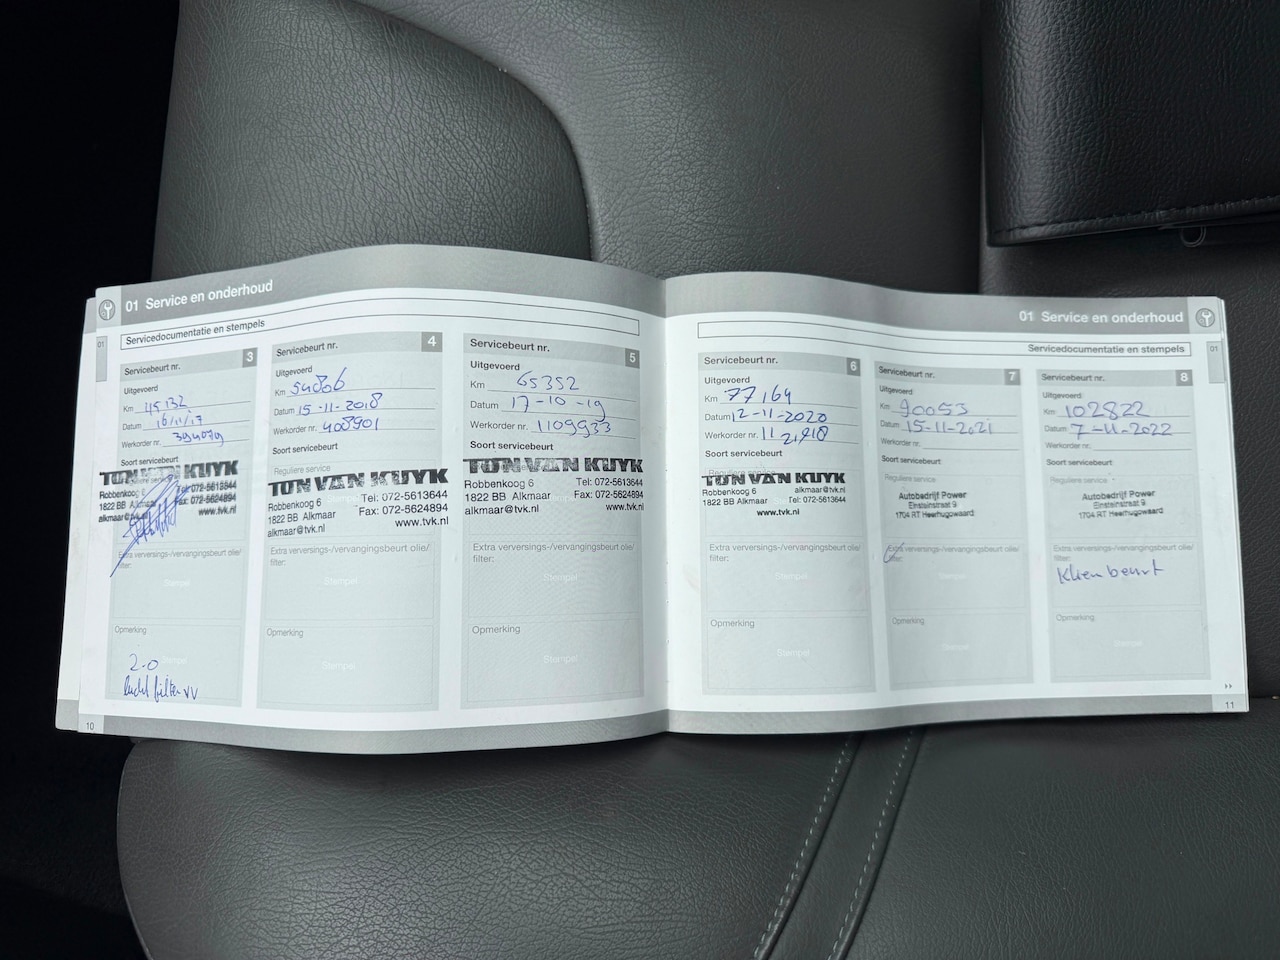 01 Service en onderhoud
01
Servicedocumentatie en stempels
Servicebeurt nr. 3
Uitgevoerd
Km 45132
Datum 16/11/17
Werkorder nr. 394079
Soort servicebeurt
TON VAN KUYK
Robbenkoog 6 Tel: 072-5613644
1822 BB Alkmaar Fax: 072-5624894
alkmaar@tvk.nl www.tvk.nl
Extra verversings-/vervangingsbeurt olie/
filter:
Stempel
Opmerking
2.0
filter vv
Servicebeurt nr. 4
Uitgevoerd
Km 54806
Datum 15-11-2018
Werkorder nr. 408901
Soort servicebeurt
Reguliere service
TON VAN KUYK
Robbenkoog 6 Tel: 072-5613644
1822 BB Alkmaar Fax: 072-5624894
alkmaar@tvk.nl www.tvk.nl
Extra verversings-/vervangingsbeurt olie/
filter:
Stempel
Opmerking
Stempel
Servicebeurt nr. 5
Uitgevoerd
Km 65352
Datum 17-10-19
Werkorder nr. 1109933
Soort servicebeurt
TON VAN KUYK
Robbenkoog 6 Tel: 072-5613644
1822 BB Alkmaar Fax: 072-5624894
alkmaar@tvk.nl www.tvk.nl
Extra verversings-/vervangingsbeurt olie/
filter:
Stempel
Opmerking
Stempel
10
01 Service en onderhoud
01
Servicedocumentatie en stempels
Servicebeurt nr. 6
Uitgevoerd
Km 77164
Datum 12-11-2020
Werkorder nr.
Soort servicebeurt
Reguliere service
TON VAN KUYK
Robbenkoog 6 alkmaar@tvk.nl
1822 BB Alkmaar Tel: 072-5613644
www.tvk.nl
Extra verversings-/vervangingsbeurt olie/
filter:
Stempel
Opmerking
Stempel
Servicebeurt nr. 7
Uitgevoerd
Km 90053
Datum 15-11-2021
Werkorder nr.
Soort servicebeurt
Autobedrijf Power
Einsteinstraat 9
1704 RT Heerhugowaard
Extra verversings-/vervangingsbeurt olie/
filter:
Stempel
Opmerking
Stempel
Servicebeurt nr. 8
Uitgevoerd
Km 102822
Datum 7-11-2022
Werkorder nr.
Soort servicebeurt
Autobedrijf Power
Einsteinstraat 9
1704 RT Heerhugowaard
Extra verversings-/vervangingsbeurt olie/
filter:
Klien beurt
Opmerking
Stempel
11